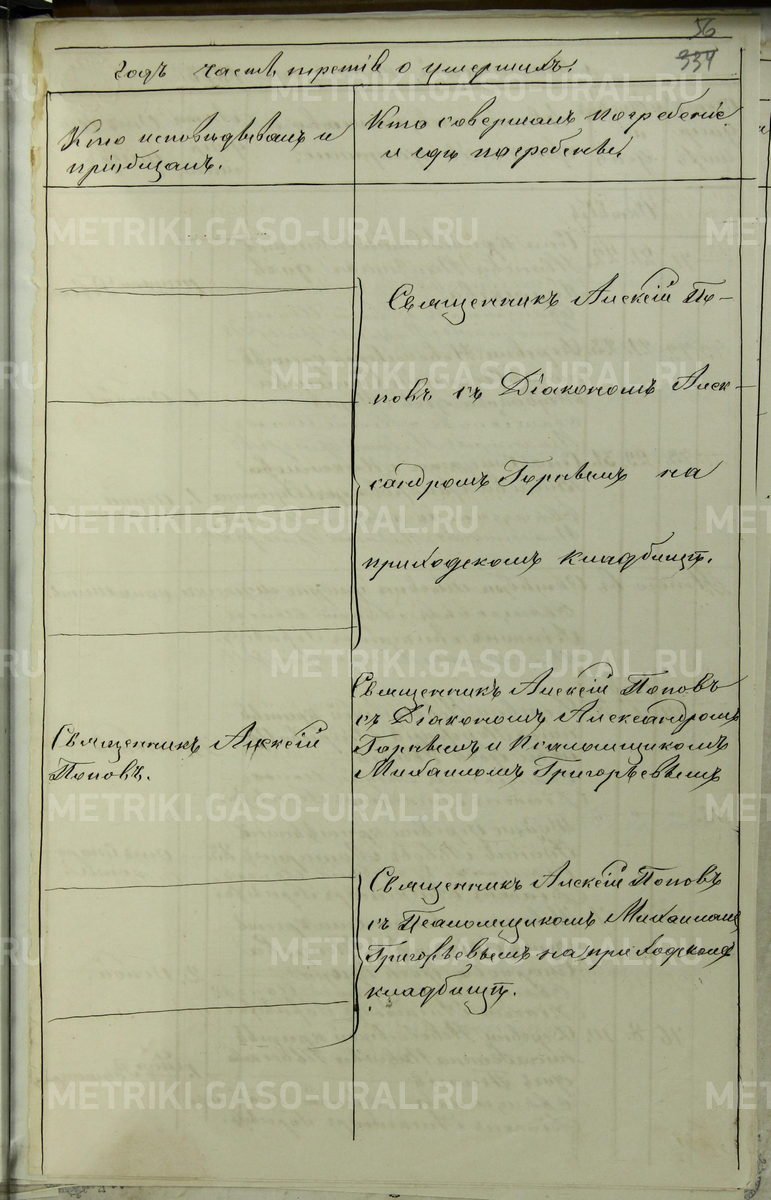 56
334
годъ часть третія о умершихъ.
Кто исповѣдывалъ и
пріобщалъ.
Кто совершалъ погребеніе
и гдѣ погребены.
Священникъ Алексій По-
повъ съ Діакономъ Алек-
сандромъ Горнымъ на
приходскомъ кладбищѣ.
Священникъ Алексій
Поповъ.
Священникъ Алексій Поповъ
съ Діакономъ Александромъ
Горнымъ и Псаломщикомъ
Михаиломъ Григорьевымъ
Священникъ Алексій Поповъ
съ Псаломщикомъ Михаиломъ
Григорьевымъ на приходскомъ
кладбищѣ.
METRIKI.GASO-URAL.RU